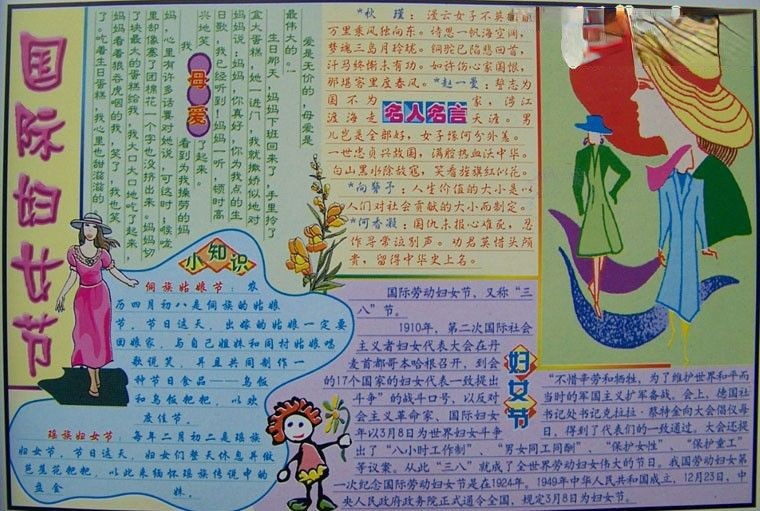 国际妇女节
母爱
爱是无价的，母爱是
最伟大的。
生日那天，妈妈下班回来了，手里拎了
盒大蛋糕，她一进门，我就撒娇似地对
妈妈说：妈妈，你真好，你为我点的生
日歌，我已经听到！妈妈一听，顿时高
兴地笑了起来。
我看到为我操劳的妈
妈，心里有许多话要对她说，可这时，喉咙
里却像塞了团棉花一个字也没挤出来。妈妈切
了块最大的蛋糕给我，我大口大口地吃了起来，
妈妈看着狼吞虎咽的我，笑了，我也笑
了。吃着生日蛋糕，我心里也甜滋滋的
名人名言
*秋瑾：漫云女子不英
万里乘风独向东。诗思一帆海空阔，
梦魂三岛月玲珑。铜驼已陷悲回首，
汗马终惭未有功。如许伤心家国恨，
那堪客里度春风。*赵一曼：誓志为
国不为家，涉江
渡海走天涯。男
儿岂是全都好，女子缘何分外差。
一世忠贞兴故国，满腔热血沃中华。
白山黑水除敌寇，笑看旌旗红似花。
*向警予：人生价值的大小是以
人们对社会贡献的大小而制定。
*何香凝：国仇未报心难死，忍
作寻常泣别声。劝君莫惜头颅
贵，留得中华史上名。
小知识
侗族姑娘节：农
历四月初八是侗族的姑娘
节，节日这天，出嫁的姑娘一定要
回娘家，与自己姐妹和同村姑娘唱
歌说笑，并且共同制作一
种节日食品——乌饭
和乌饭粑粑，以欢
度佳节。
瑶族妇女节：每年二月初二是瑶族
妇女节，节日这天，妇女们整天休息并做
芭蕉花粑粑，以此来缅怀瑶族传说中的
盘金妹。
妇女节
国际劳动妇女节，又称“三
八”节。
1910年，第二次国际社会
主义者妇女代表大会在丹
麦首都哥本哈根召开，到会
的17个国家的妇女代表一致提出
斗争”的战斗口号，以反对
会主义革命家、国际妇女
年以3月8日为世界妇女斗争
出了“八小时工作制”、“男女同工同酬”、“保护女性”、“保护童工”
等议案。从此“三八”就成了全世界劳动妇女伟大的节日。我国劳动妇女第
一次纪念国际劳动妇女节是在1924年。1949年中华人民共和国成立，12月23日，中
央人民政府政务院正式通令全国，规定3月8日为妇女节。
“不惜辛劳和牺牲，为了维护世界和平而
当时的军国主义扩军备战。会上，德国社
书记处书记克拉拉·蔡特金向大会倡仪每
日，得到了代表们的一致通过，大会还提